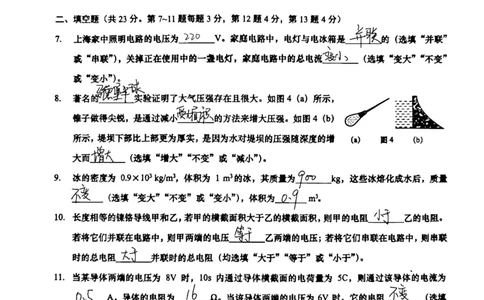 二、填空题（共 23 分。第 7~11 题每题 3 分，第 12 题 4 分，第 13 题 4 分）
7. 上海家中照明电路的电压为 220 V。家庭电路中，电灯与电冰箱是 并联 的（选填“并联”
或“串联”），关掉正在使用中的一盏电灯，家庭电路中的总电流 变小 （选填“变大”“不变”
或“变小”）。
8. 著名的 马德堡半球 实验证明了大气压强存在且很大。如图 4（a）所示，
锥子做得尖锐，是通过减小 受力面积 的方法来增大压强。如图 4（b）
所示，堤坝下部比上部更为厚实，是因为水对堤坝的压强随深度的增
大而 增大 （选填“增大”“不变”或“减小”）。
(a) 图 4 (b)
9. 冰的密度为 0.9×10³ kg/m³，体积为 1 m³的冰，其质量为 900 kg，这些冰熔化成水后，质量
不变 （选填“变大”“不变”或“变小”），体积为 0.9 m³。
10. 长度相等的镍铬导线甲和乙，若甲的横截面积大于乙的横截面积，则甲的电阻 小于 乙的电阻。
若将它们并联在电路中，则甲两端的电压 等于 乙两端的电压；若将它们串联在电路中，则串联
时的总电阻 大于 并联时的总电阻（均选填“大于”“等于”或“小于”）。
11. 当某导体两端的电压为 8V 时，10s 内通过导体横截面的电荷量为 5C，则通过该导体的电流为
0.5 A，导体的电阻为 16 Ω。当该导体两端的电压为 6V 时，它的电阻 不变 （选填